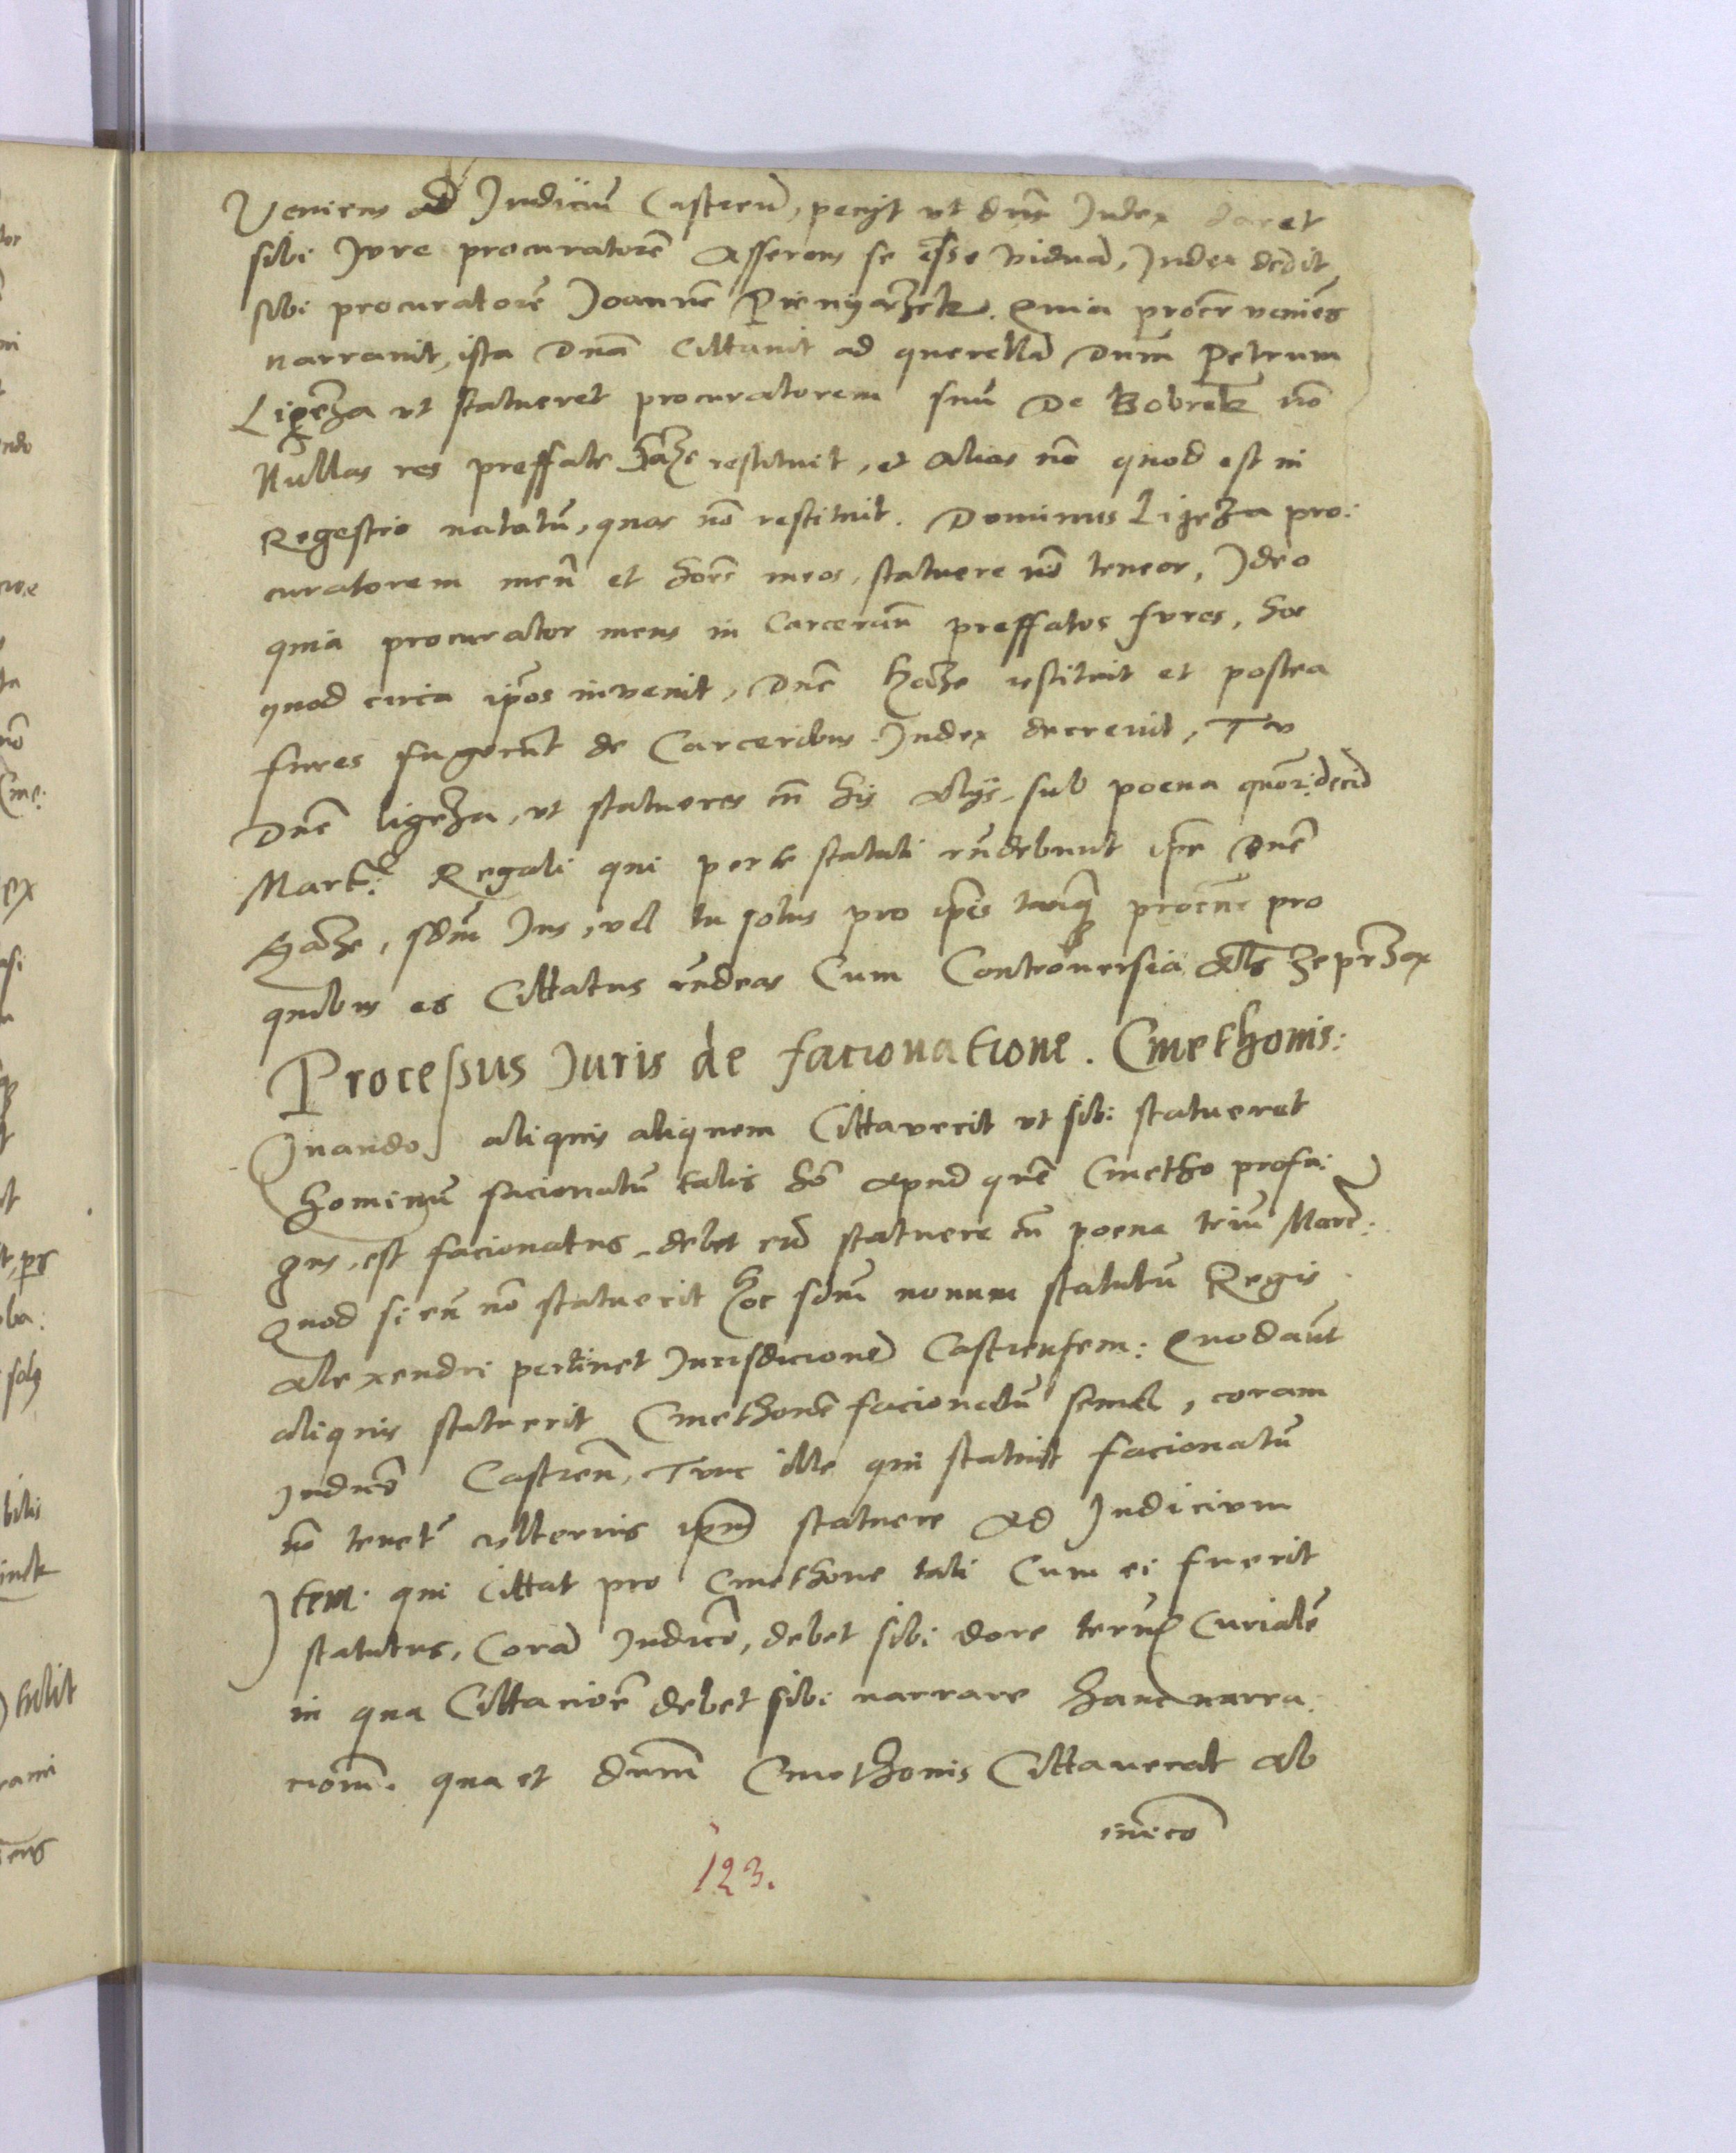 Veniens ad Judiciu Castren, pecyt vt dns Judex daret
sibi Jure procuratore Asserens se esse vidua, Judex dedit
sibi procuratore Joanne Pienyazek. Quia procr veniens
narrauit, ista Dna Cittauit ad querella Dnm Petrum
Ligeza vt statueret procuratorem suu De Bobrek no
Nullas res preffate restituit, et Alias no quod est in
Regestro notatu, quas no restituit. Dominus Ligeza pro:
curatorem meu et hoies meos, statuere no teneor, Ideo
quia procurator meus in Carceraun preffatos fures, hoc
quod circa ipos invenit, Dne restituit et postea
fures fugerunt de Carceribus Judex decreuit, Tu
Dne ligeza, vt statueres cu his Alys, sub poena
Mart: Regali qui per te statuti rndebunt ipse Dne
sdm Jus, vel tu solus pro ipis tanq procur pro
quibus es Cittatus rndeas Cum Controuersia Als
Processus Juris de facionatione. Cmethonis:
Quando aliquis aliquem Cittaverit vt sibi statueret
hominum facionatum talis ho Apud que Cmetho profu:
gus, est facionatus, debet eu statuere cu poena triu Marc:
Quod si eu no statuerit hoc sdm nouum statutu Regis
Alexendri pertinet Jurisdicione Castrensem: Quod aut
aliquis statuerit Cmethone facionatu semel, coram
Judicio Castren, Tunc ille qui statuit facionatu
no tenet ulterius ipm statuere Ad Judicium
Item qui Cittat pro Cmethone tali Cum ei fuerit
statutus, Cora Judicio, debet sibi dare termi Curiale
in qua Cittacioe debet sibi narrare hanc narra:
ciom. qua et dnm Cmethonis Cittauerat Ab
inicio
123.